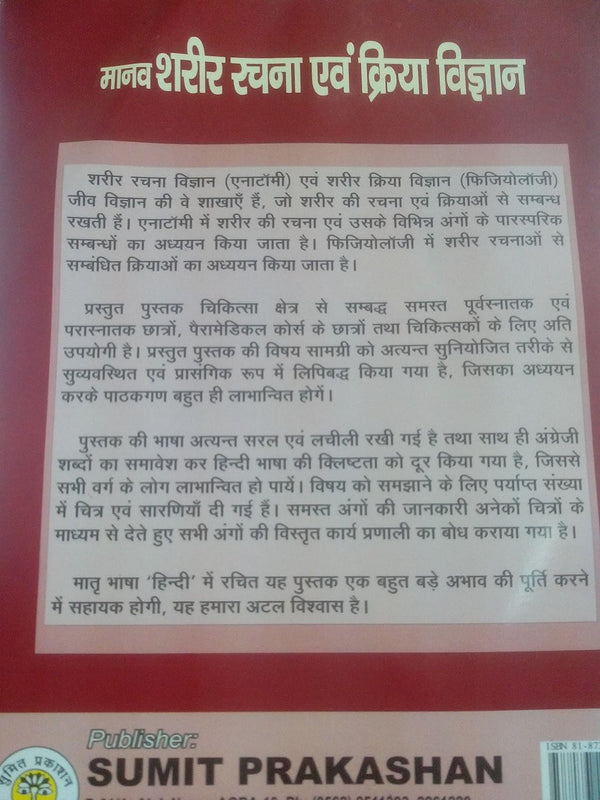 मानव शरीर रचना एवं क्रिया विज्ञान
शरीर रचना विज्ञान (एनाटॉमी) एवं शरीर क्रिया विज्ञान (फिजियोलॉजी)
जीव विज्ञान की वे शाखाएँ हैं, जो शरीर की रचना एवं क्रियाओं से सम्बन्ध
रखती हैं। एनाटॉमी में शरीर की रचना एवं उसके विभिन्न अंगों के पारस्परिक
सम्बन्धों का अध्ययन किया जाता है। फिजियोलॉजी में शरीर रचनाओं से
सम्बंधित क्रियाओं का अध्ययन किया जाता है।
प्रस्तुत पुस्तक चिकित्सा क्षेत्र से सम्बद्ध समस्त पूर्वस्नातक एवं
परास्नातक छात्रों, पैरामेडिकल कोर्स के छात्रों तथा चिकित्सकों के लिए अति
उपयोगी है। प्रस्तुत पुस्तक की विषय सामग्री को अत्यन्त सुनियोजित तरीके से
सुव्यवस्थित एवं प्रासंगिक रूप में लिपिबद्ध किया गया है, जिसका अध्ययन
करके पाठकगण बहुत ही लाभान्वित होगें।
पुस्तक की भाषा अत्यन्त सरल एवं लचीली रखी गई है तथा साथ ही अंग्रेजी
शब्दों का समावेश कर हिन्दी भाषा की क्लिष्टता को दूर किया गया है, जिससे
सभी वर्ग के लोग लाभान्वित हो पायें। विषय को समझाने के लिए पर्याप्त संख्या
में चित्र एवं सारणियाँ दी गई हैं। समस्त अंगों की जानकारी अनेकों चित्रों के
माध्यम से देते हुए सभी अंगों की विस्तृत कार्य प्रणाली का बोध कराया गया है।
मातृ भाषा 'हिन्दी' में रचित यह पुस्तक एक बहुत बड़े अभाव की पूर्ति करने
में सहायक होगी, यह हमारा अटल विश्वास है।
Publisher:
SUMIT PRAKASHAN
सुमित प्रकाशन
ISBN 81-87